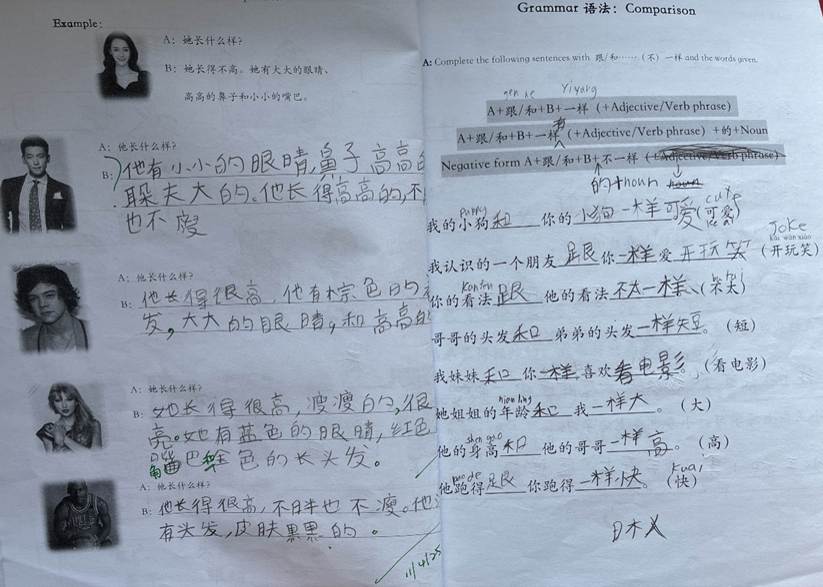 Example:
A: 她长什么样?
B: 她长得不高。她有大大的眼睛、
高高的鼻子和小小的嘴巴。
A: 他长什么样?
B: 他有小小的眼睛,鼻子高高的
大的。他长得高高的,不
也不
A: 他长什么样?
B: 他长得很高,他有棕色的
发,大大的眼睛,和高高的
A: 她长什么样?
B: 她长得很高,瘦瘦的,很
亮。她有蓝色的眼睛,红色
嘴巴和金色的长头发。
A: 他长什么样?
B: 他长得很高,不胖也不瘦。他
有头发,皮肤黑黑的。
11/4/25
Grammar 语法: Comparison
A: Complete the following sentences with 跟/和……(不)一样 and the words given.
gen he Yiyang
A+跟/和+B+一样 (+Adjective/Verb phrase)
A+跟/和+B+一样 (+Adjective/Verb phrase) +的+Noun
Negative form A+跟/和+B+不一样 (+Adjective/Verb phrase)
的+noun
puppy cute
我的小狗和你的小狗一样可爱(可爱)
ke ai
Joke
kai wan xiao
我认识的一个朋友跟你一样爱开玩笑 (开玩笑)
你的看法跟他的看法不一样、
哥哥的头发和弟弟的头发一样短。(短)
我妹妹和你一样喜欢看电影。(看电影)
nian ling
她姐姐的年龄和我一样大。(大)
shen gao
他的身高和他的哥哥一样高。(高)
kuai
他跑得跟你跑得一样快。(快)